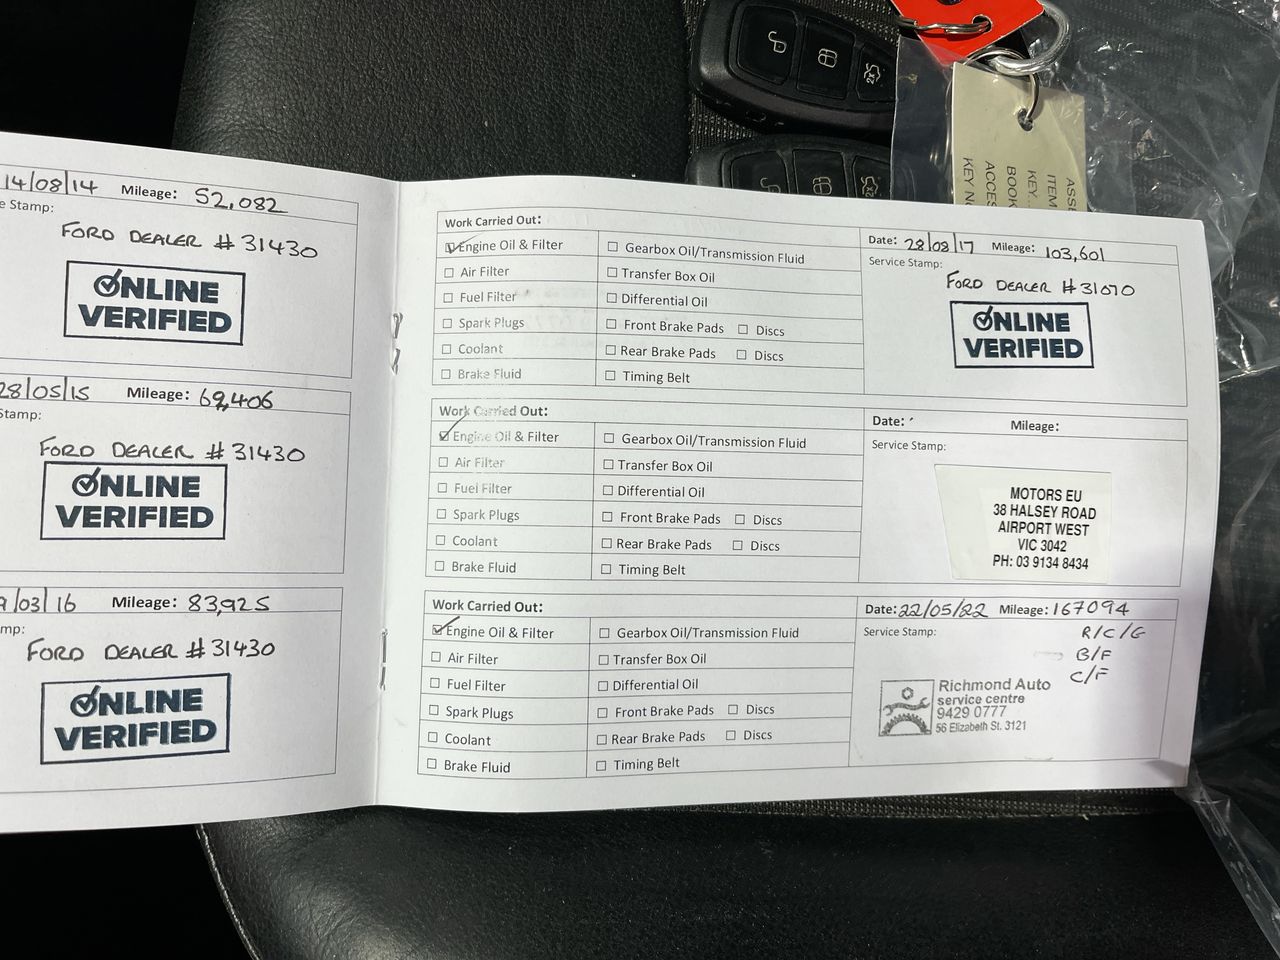 14/08/14 Mileage: 52,082
e Stamp:
FORD DEALER # 31430
ONLINE
VERIFIED
28/05/15 Mileage: 69,406
Stamp:
FORD DEALER # 31430
ONLINE
VERIFIED
9/03/16 Mileage: 83,925
mp:
FORD DEALER # 31430
ONLINE
VERIFIED
Work Carried Out:
Engine Oil & Filter
Gearbox Oil/Transmission Fluid
Air Filter
Transfer Box Oil
Fuel Filter
Differential Oil
Spark Plugs
Front Brake Pads Discs
Coolant
Rear Brake Pads Discs
Brake Fluid
Timing Belt
Date: 28/08/17 Mileage: 103,601
Service Stamp:
FORD DEALER # 31070
ONLINE
VERIFIED
Work Carried Out:
Engine Oil & Filter
Gearbox Oil/Transmission Fluid
Air Filter
Transfer Box Oil
Fuel Filter
Differential Oil
Spark Plugs
Front Brake Pads Discs
Coolant
Rear Brake Pads Discs
Brake Fluid
Timing Belt
Date: Mileage:
Service Stamp:
MOTORS EU
38 HALSEY ROAD
AIRPORT WEST
VIC 3042
PH: 03 9134 8434
Work Carried Out:
Engine Oil & Filter
Gearbox Oil/Transmission Fluid
Air Filter
Transfer Box Oil
Fuel Filter
Differential Oil
Spark Plugs
Front Brake Pads Discs
Coolant
Rear Brake Pads Discs
Brake Fluid
Timing Belt
Date: 22/05/22 Mileage: 167094
Service Stamp:
R/C/G
B/F
C/F
Richmond Auto
service centre
9429 0777
56 Elizabeth St. 3121
ASSE
ITEM
KEY...
BOOK
ACCES
KEY N
2X